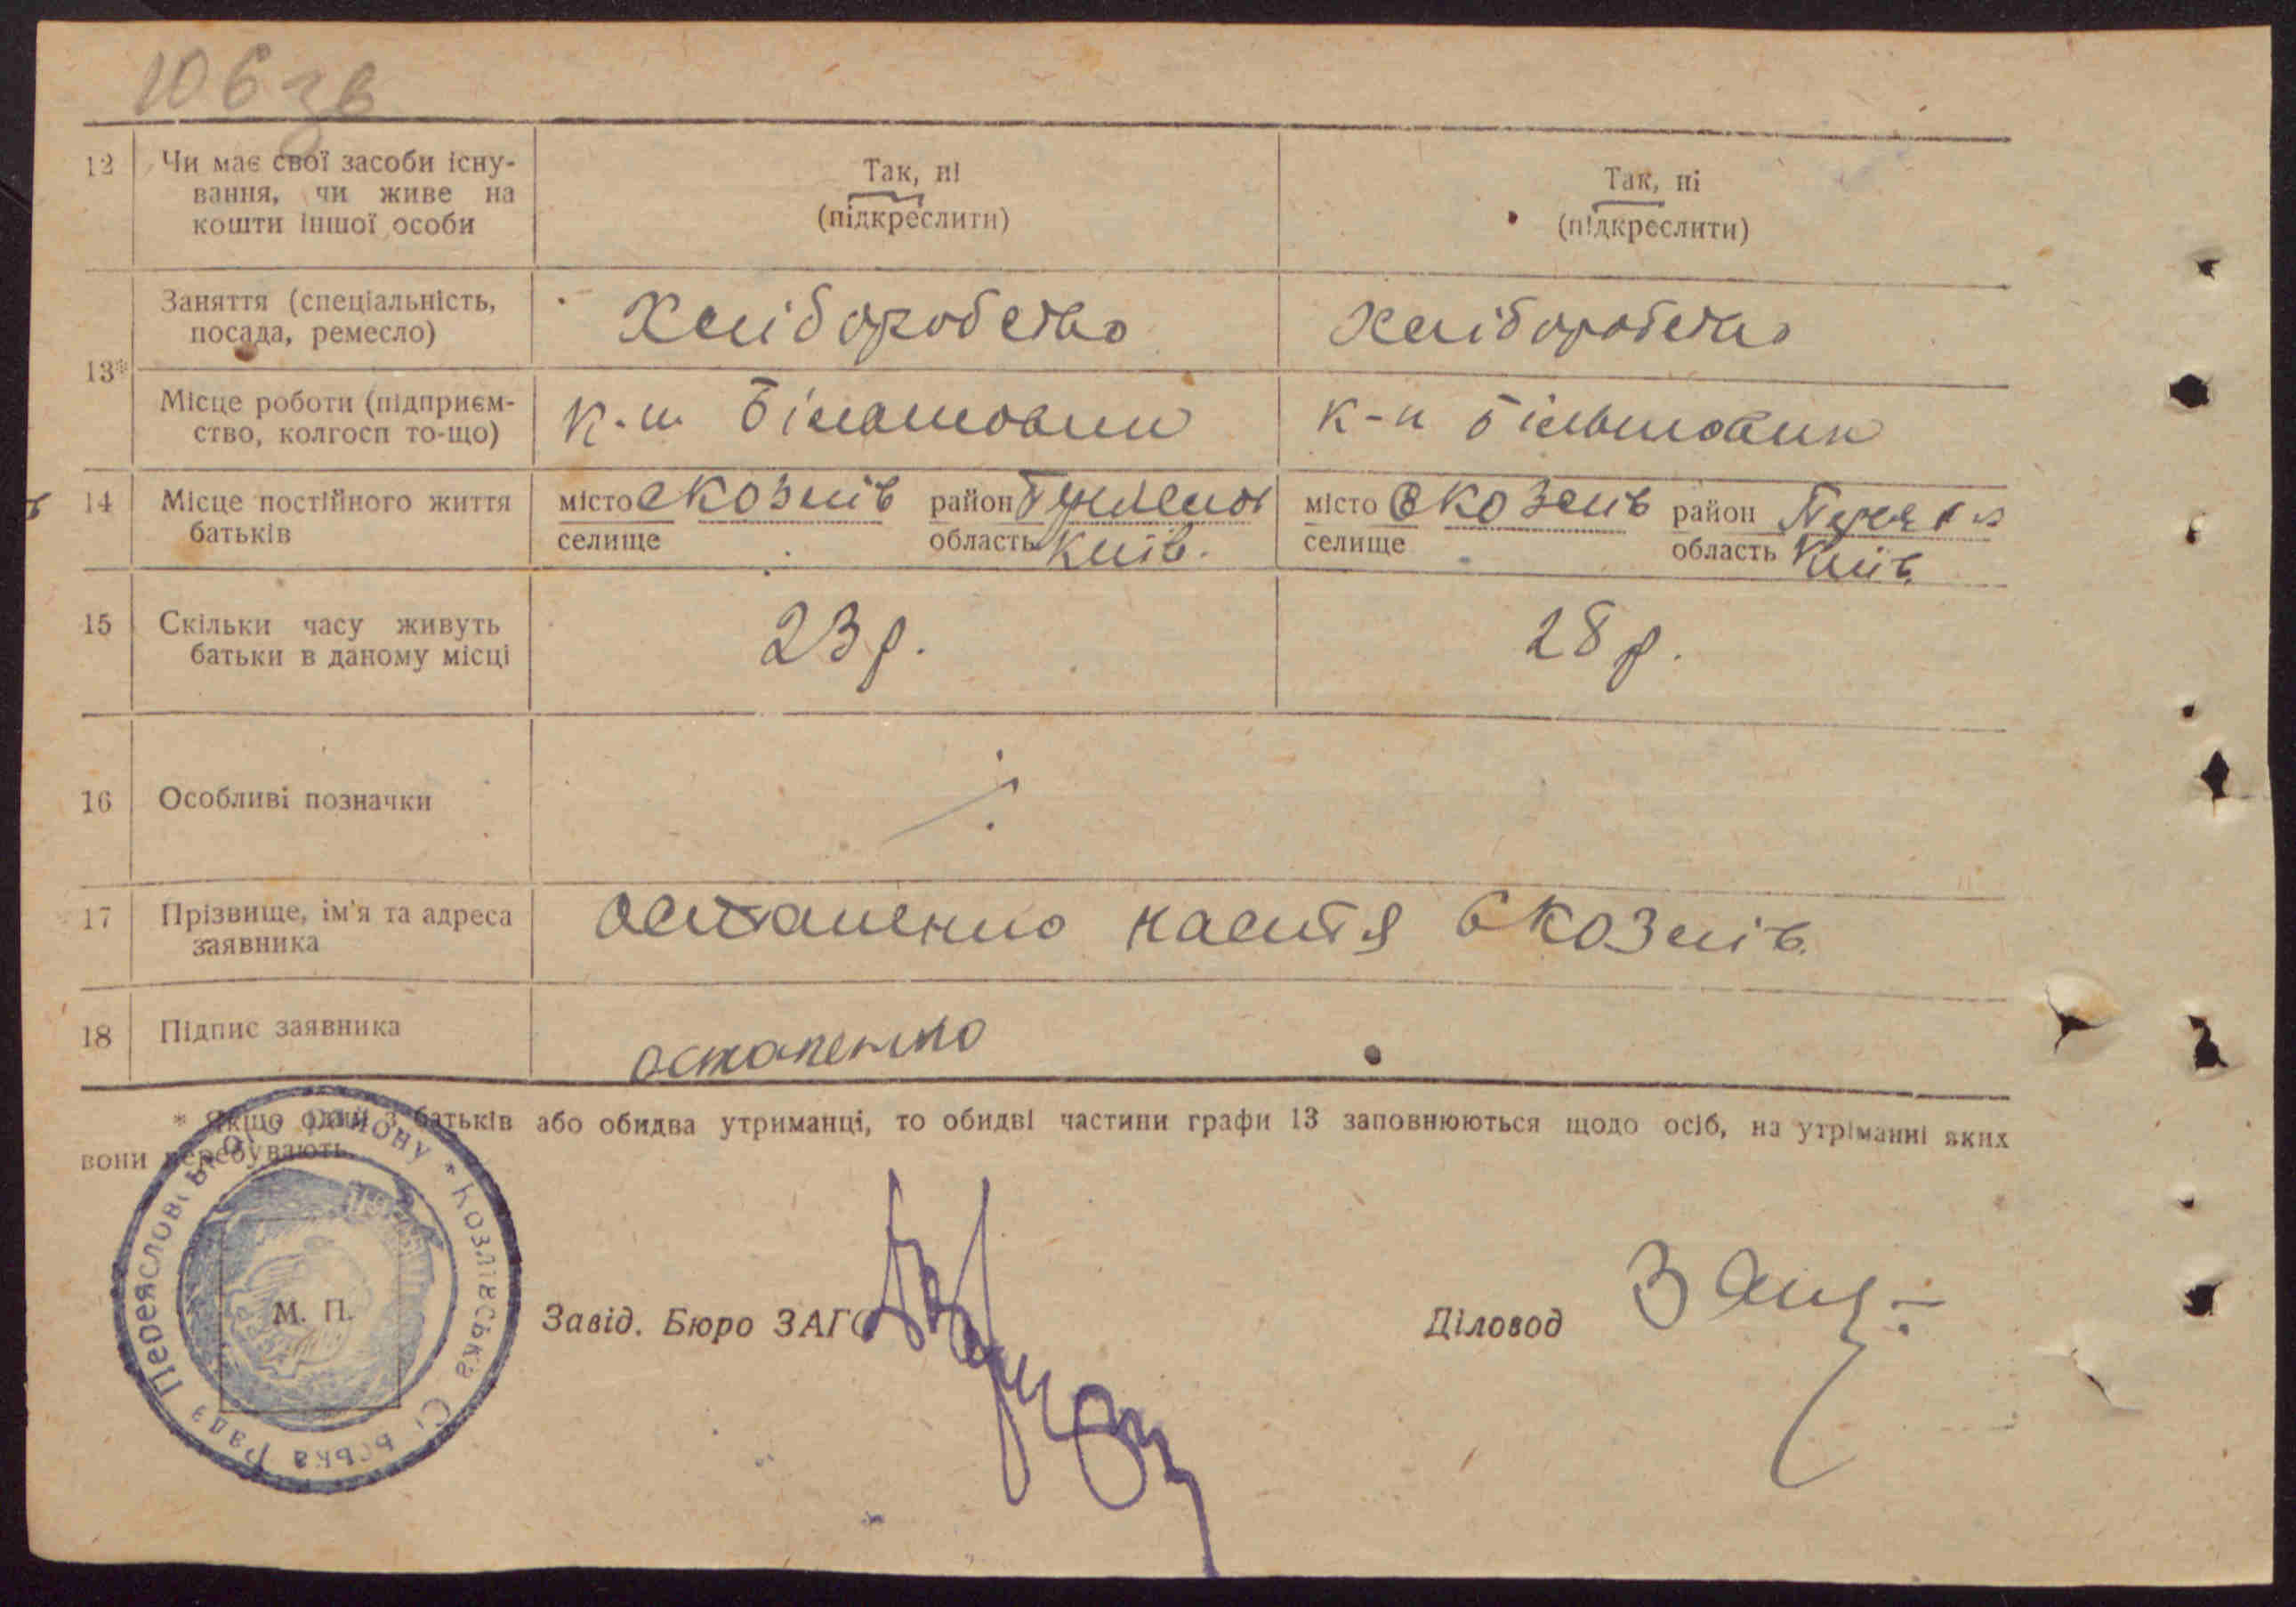 106 зв
12 Чи має свої засоби існу-
вання, чи живе на
кошти іншої особи
Так, ні
(підкреслити)
Так, ні
(підкреслити)
13*
Заняття (спеціальність,
посада, ремесло)
Хліборобство
Хліборобство
Місце роботи (підприєм-
ство, колгосп то-що)
к-п Більшовик
к-п Більшовик
14 Місце постійного життя
батьків
місто с Козлів район
селище область Київ.
місто с Козлів район Переясл
селище область Київ
15 Скільки часу живуть
батьки в даному місці
23 р.
28 р.
16 Особливі позначки
17 Прізвище, ім'я та адреса
заявника
Остапенко Настя с Козлів
18 Підпис заявника
Остапенко
* Якщо один з батьків або обидва утриманці, то обидві частини графи 13 заповнюються щодо осіб, на утріманні яких
вони перебувають.
Переяславського району * Козлівська Сільська Рада
М. П.
Завід. Бюро ЗАГС
Діловод